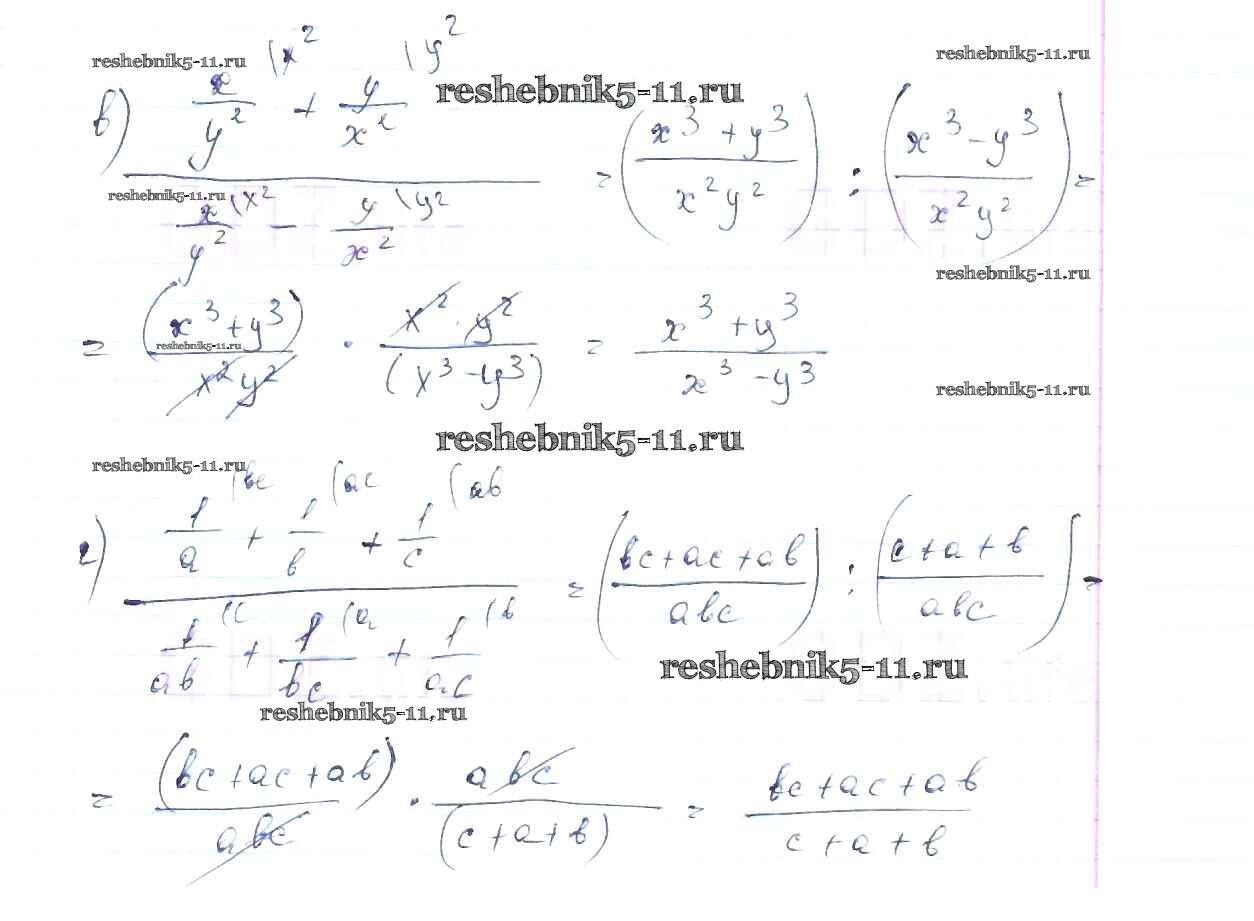 reshebnik5-11.ru
reshebnik5-11.ru
reshebnik5-11.ru
в) (x/y² \x² + y/x² \y²) / (x/y² \x² − y/x² \y²) = ((x³ + y³)/(x²y²)) : ((x³ − y³)/(x²y²)) =
reshebnik5-11.ru
reshebnik5-11.ru
= (x³ + y³)/(x²y²) · (x² · y²)/(x³ − y³) = (x³ + y³)/(x³ − y³)
reshebnik5-11.ru
reshebnik5-11.ru
reshebnik5-11.ru
reshebnik5-11.ru
г) (1/a \bc + 1/b \ac + 1/c \ab) / (1/ab \c + 1/bc \a + 1/ac \b) = ((bc + ac + ab)/(abc)) : ((c + a + b)/(abc)) =
reshebnik5-11.ru
reshebnik5-11.ru
= (bc + ac + ab)/(abc) · abc/(c + a + b) = (bc + ac + ab)/(c + a + b)